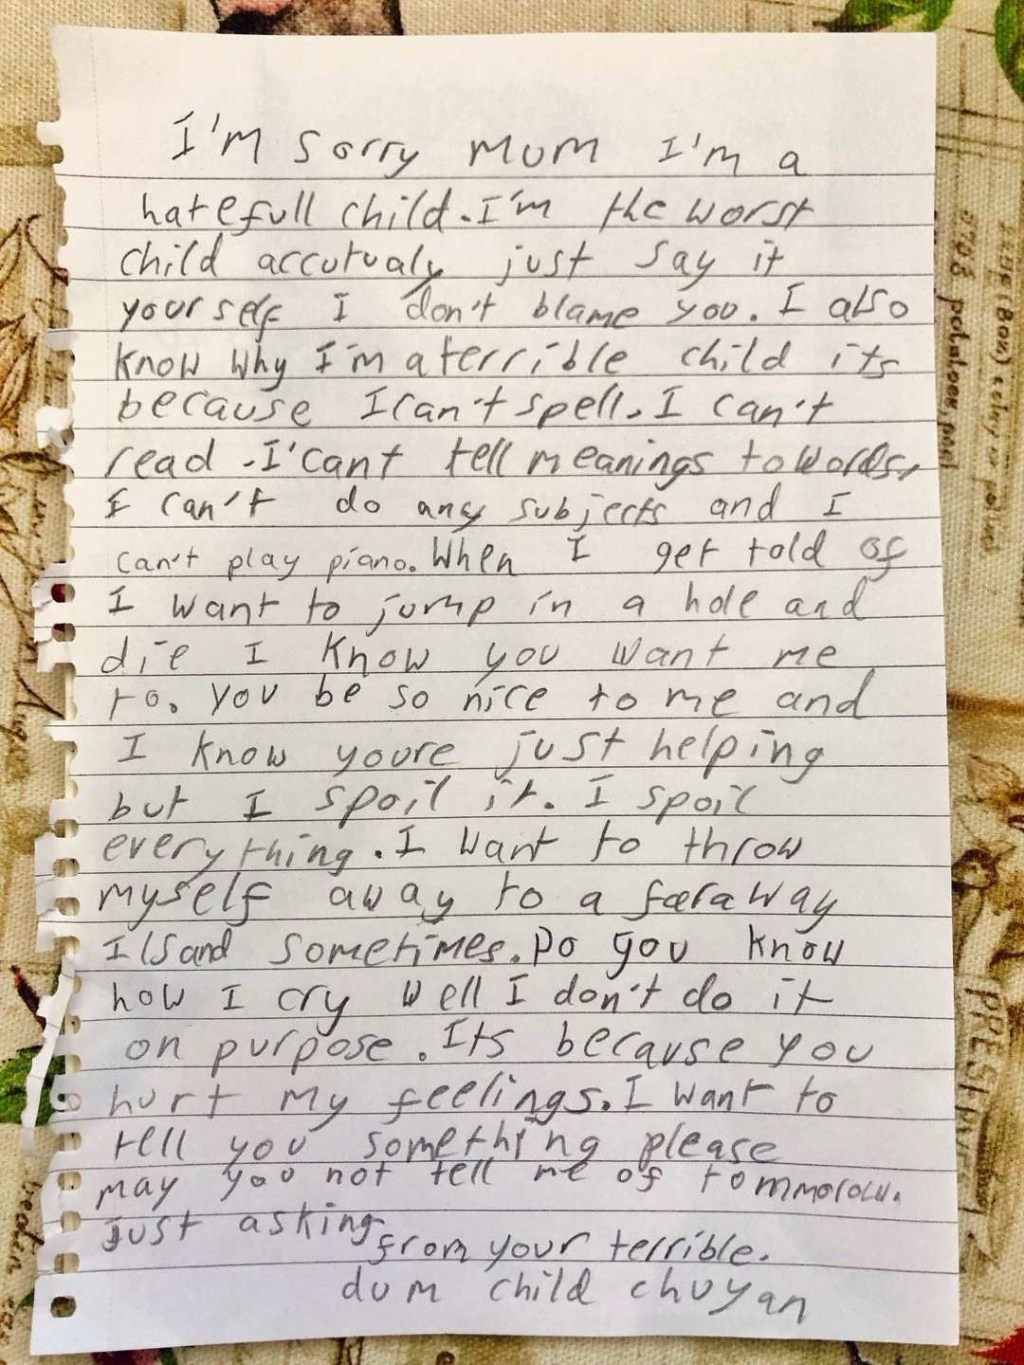 I'm sorry Mum I'm a
hatefull child. I'm the worst
child accutualy just say it
yourself I don't blame you. I also
know why I'm a terrible child its
because I can't spell. I can't
read. I'cant tell meanings to words,
I can't do any subjects and I
can't play piano. When I get told of
I want to jump in a hole and
die I know you want me
to. you be so nice to me and
I know youre just helping
but I spoil it. I spoil
everything. I want to throw
myself away to a faraway
Ilsand sometimes. Do you know
how I cry well I don't do it
on purpose. Its because you
hurt my feelings. I want to
tell you something please
may you not tell me of tommorow.
Just asking
from your terrible.
dum child chuyan
potatoes,